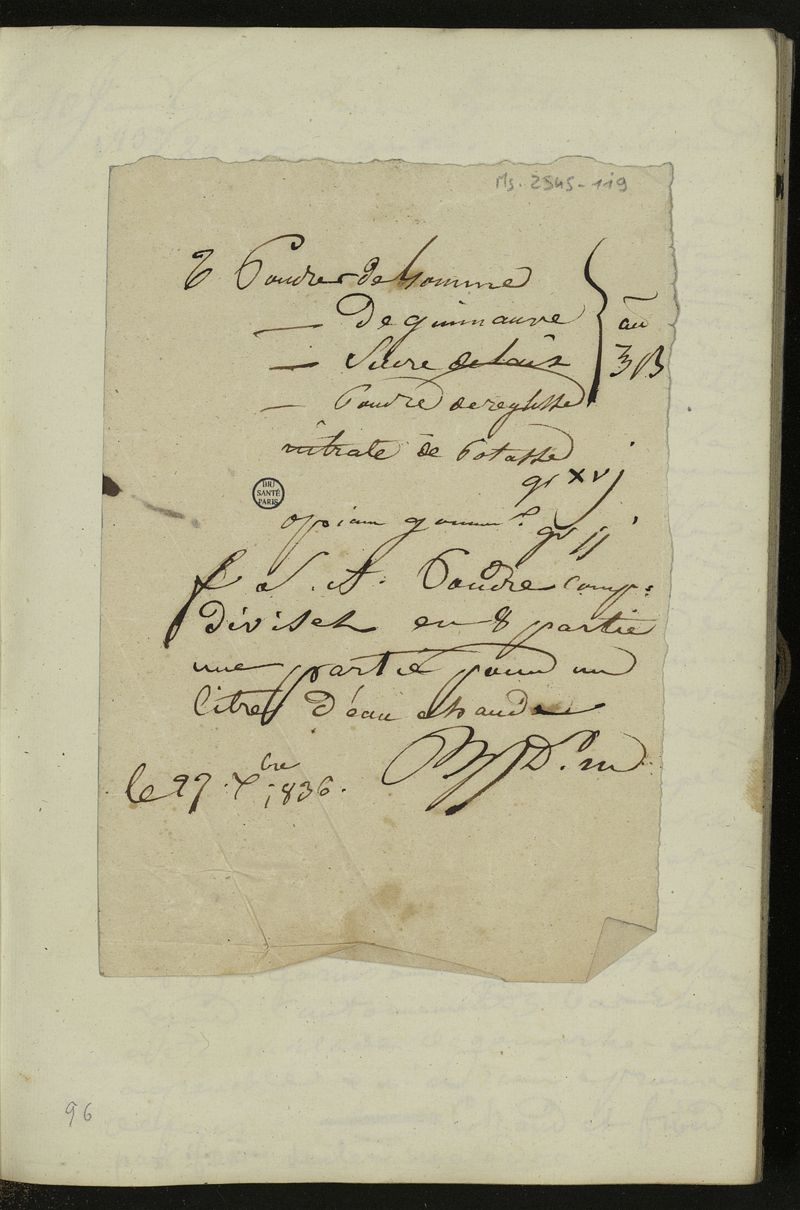 Ms. 2545-119
Poudre de Gomme
— De guimauve
— Sucre de lait
— Poudre de reglisse
aa
ʒ ß
nitrate de Potasse
gr xvj
BIU
SANTÉ
PARIS
opium gomm.
gr jj
f. S. A. Poudre comp:
Divisez en 8 partie
une partie pour un
litre d'eau chaude
D. m
le 27 7bre 1836.
96